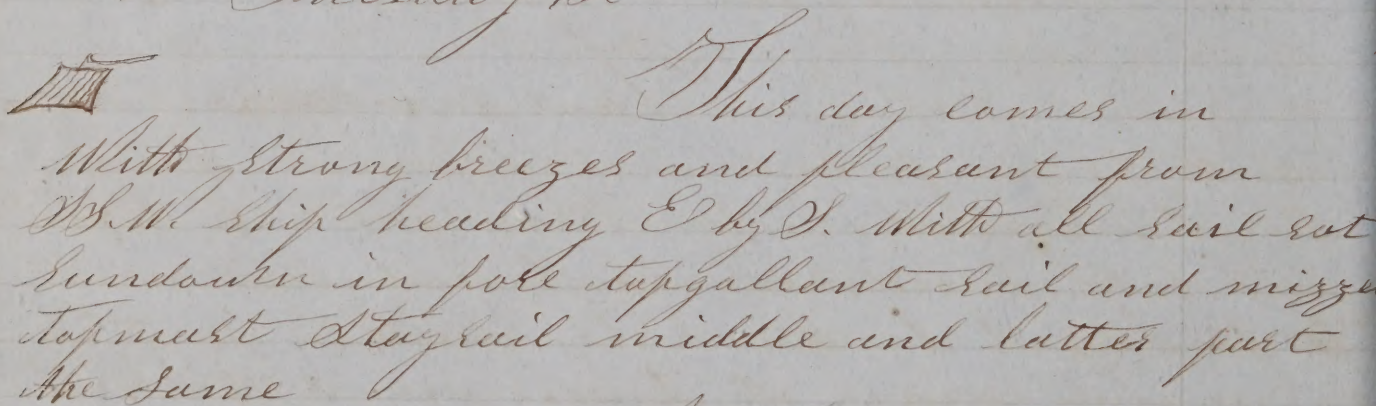 Tuesday
This day comes in
With strong breezes and pleasant from
S.S.W. Ship heading E by S. With all sail sot
Sundown in fore topgallant sail and mizze
topmast Staysail middle and latter part
the same